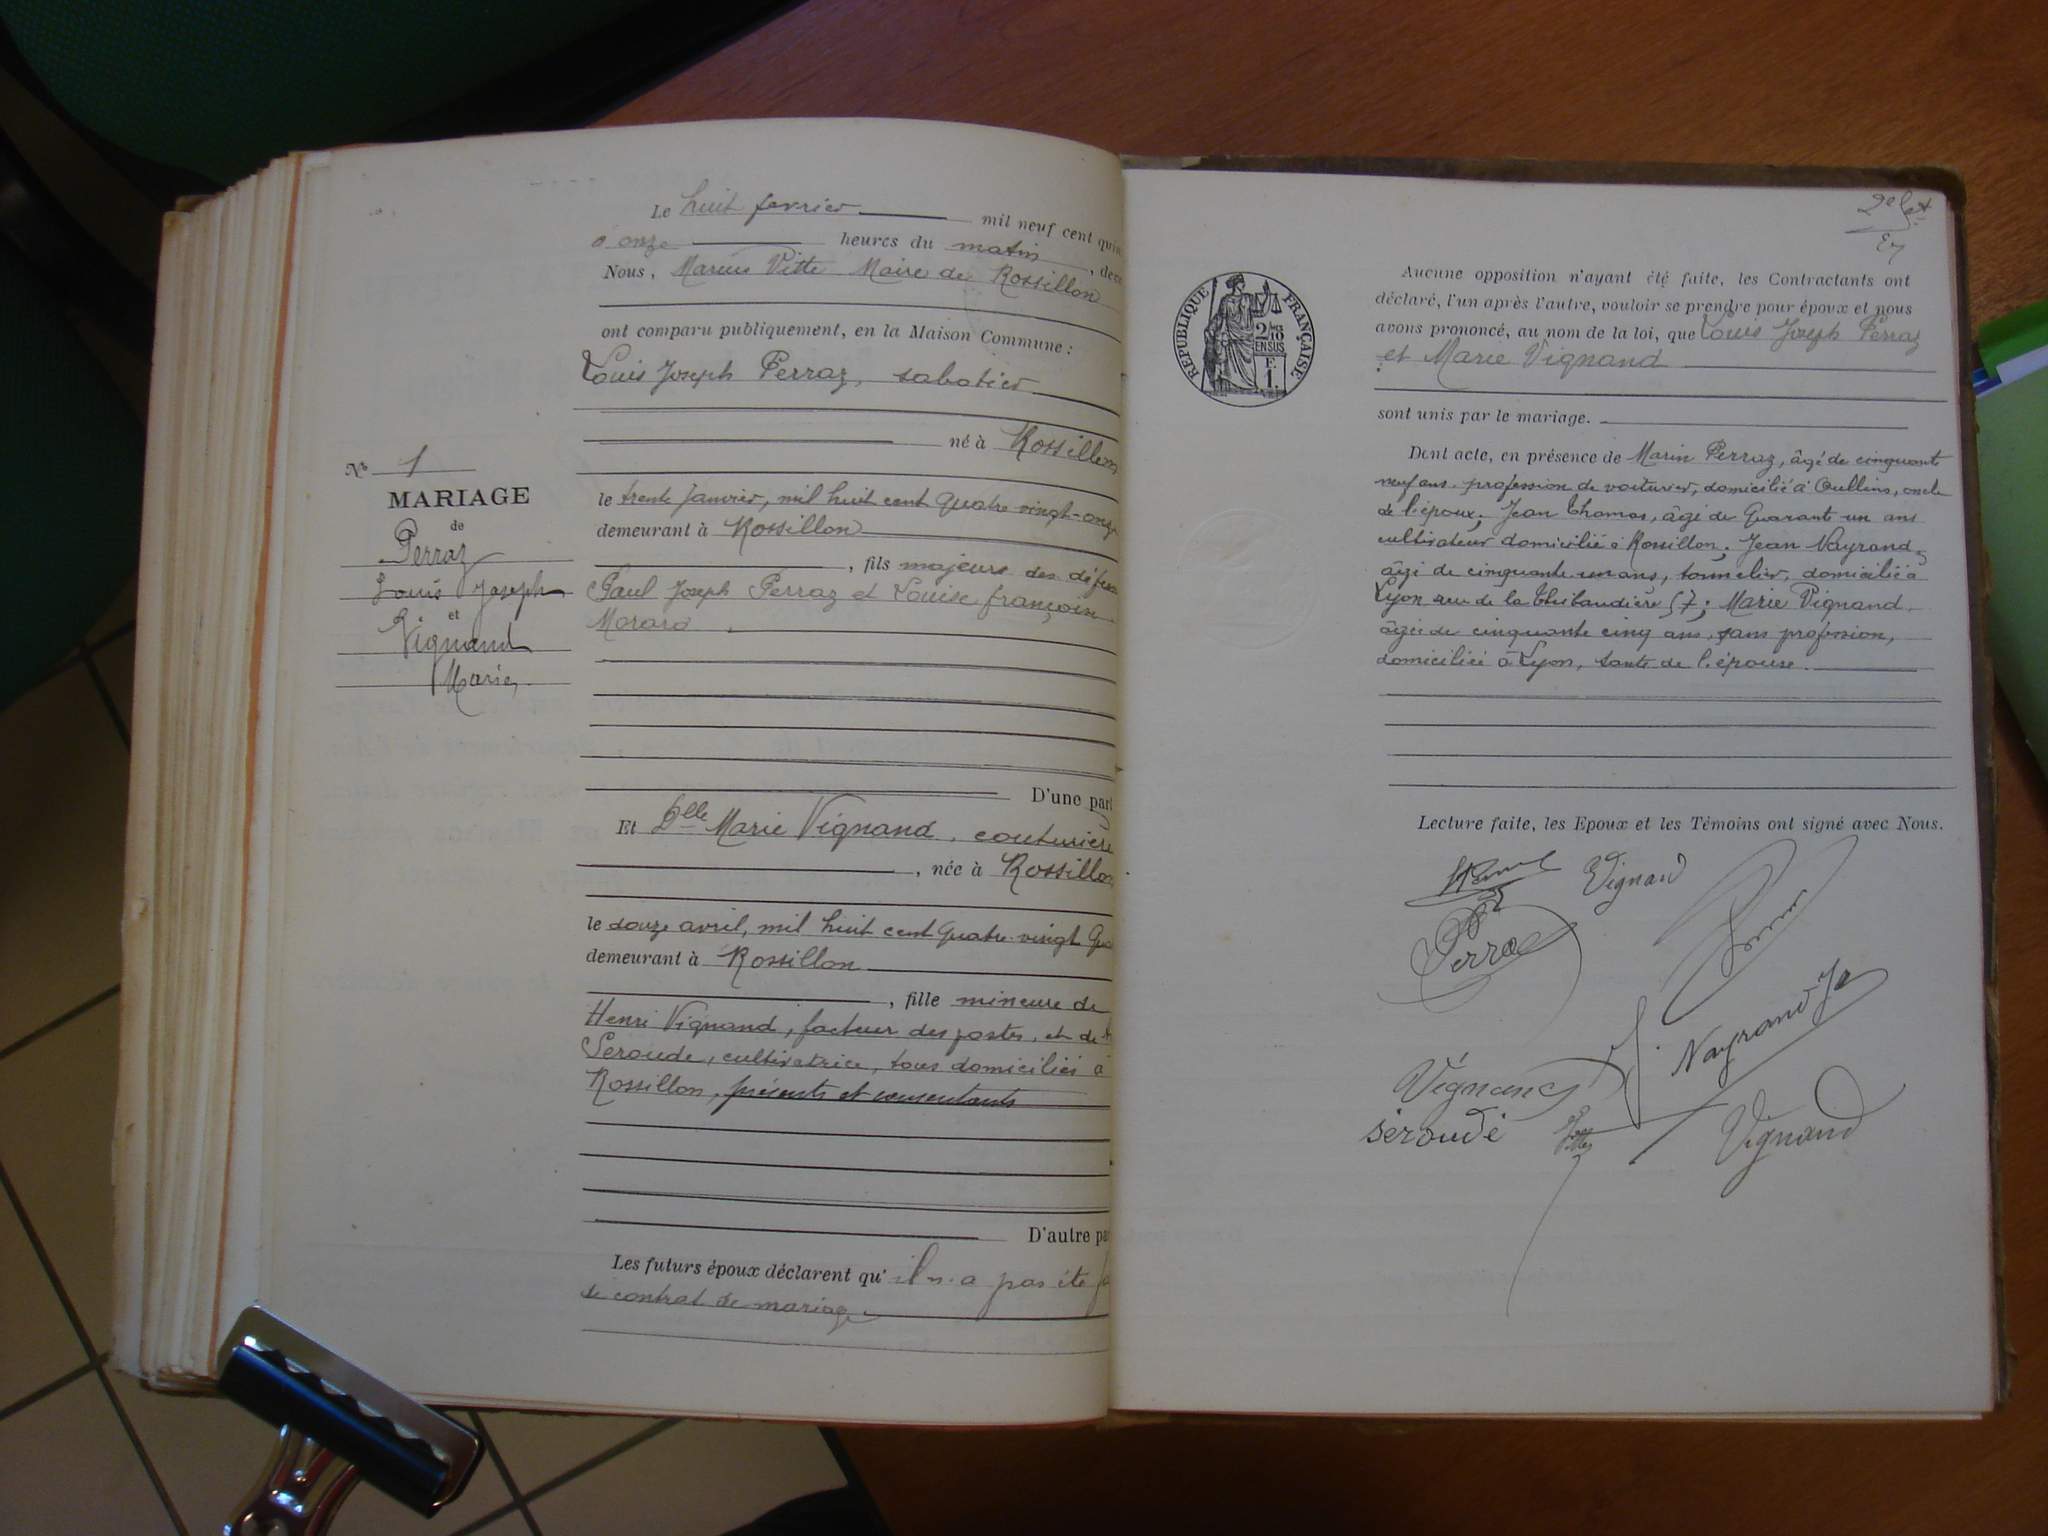 Le huit fevrier mil neuf cent quin
à onze heures du matin, deva
Nous, Marius Vitte Maire de Rossillon
ont comparu publiquement, en la Maison Commune :
Louis Joseph Perraz, sabotier
né à Rossillon
le trente Janvier, mil huit cent quatre vingt-onze
demeurant à Rossillon
, fils majeure des défun
Paul Joseph Perraz et Louise françoise
D'une part
Et Dlle Marie Vignand, couturière
, née à Rossillon
le douze avril, mil huit cent Quatre-vingt Qua
demeurant à Rossillon
, fille mineure de
Henri Vignand, facteur des postes, et de
Seroude, cultivatrice, tous domiciliés à
Rossillon, présents et consentants
D'autre par
Les futurs époux déclarent qu'il n'a pas été f
de contrat de mariage
No 1
MARIAGE
de
Perraz
Louis Joseph
et
Vignand
Marie
2e
RÉPUBLIQUE FRANÇAISE
2/10
EN SUS
E
1.
Aucune opposition n'ayant été faite, les Contractants ont
déclaré, l'un après l'autre, vouloir se prendre pour époux et nous
avons prononcé, au nom de la loi, que Louis Joseph Perraz
et Marie Vignand
sont unis par le mariage.
Dont acte, en présence de Marin Perraz, âgé de cinquante
neuf ans, profession de voiturier, domicilié à Oullins, oncle
de l'époux; Jean Thomas, âgé de Quarante un ans
cultivateur domicilié à Rossillon; Jean Nayrand,
âgé de cinquante un ans, tonnelier, domicilié à
Lyon rue de la Thibaudière 57; Marie Vignand,
âgée de cinquante cinq ans, sans profession,
domiciliée à Lyon, tante de l'épouse.
Lecture faite, les Epoux et les Témoins ont signé avec Nous.
Vignand
Perraz
Nayrand Jn
Vignand
séroude
Vignand